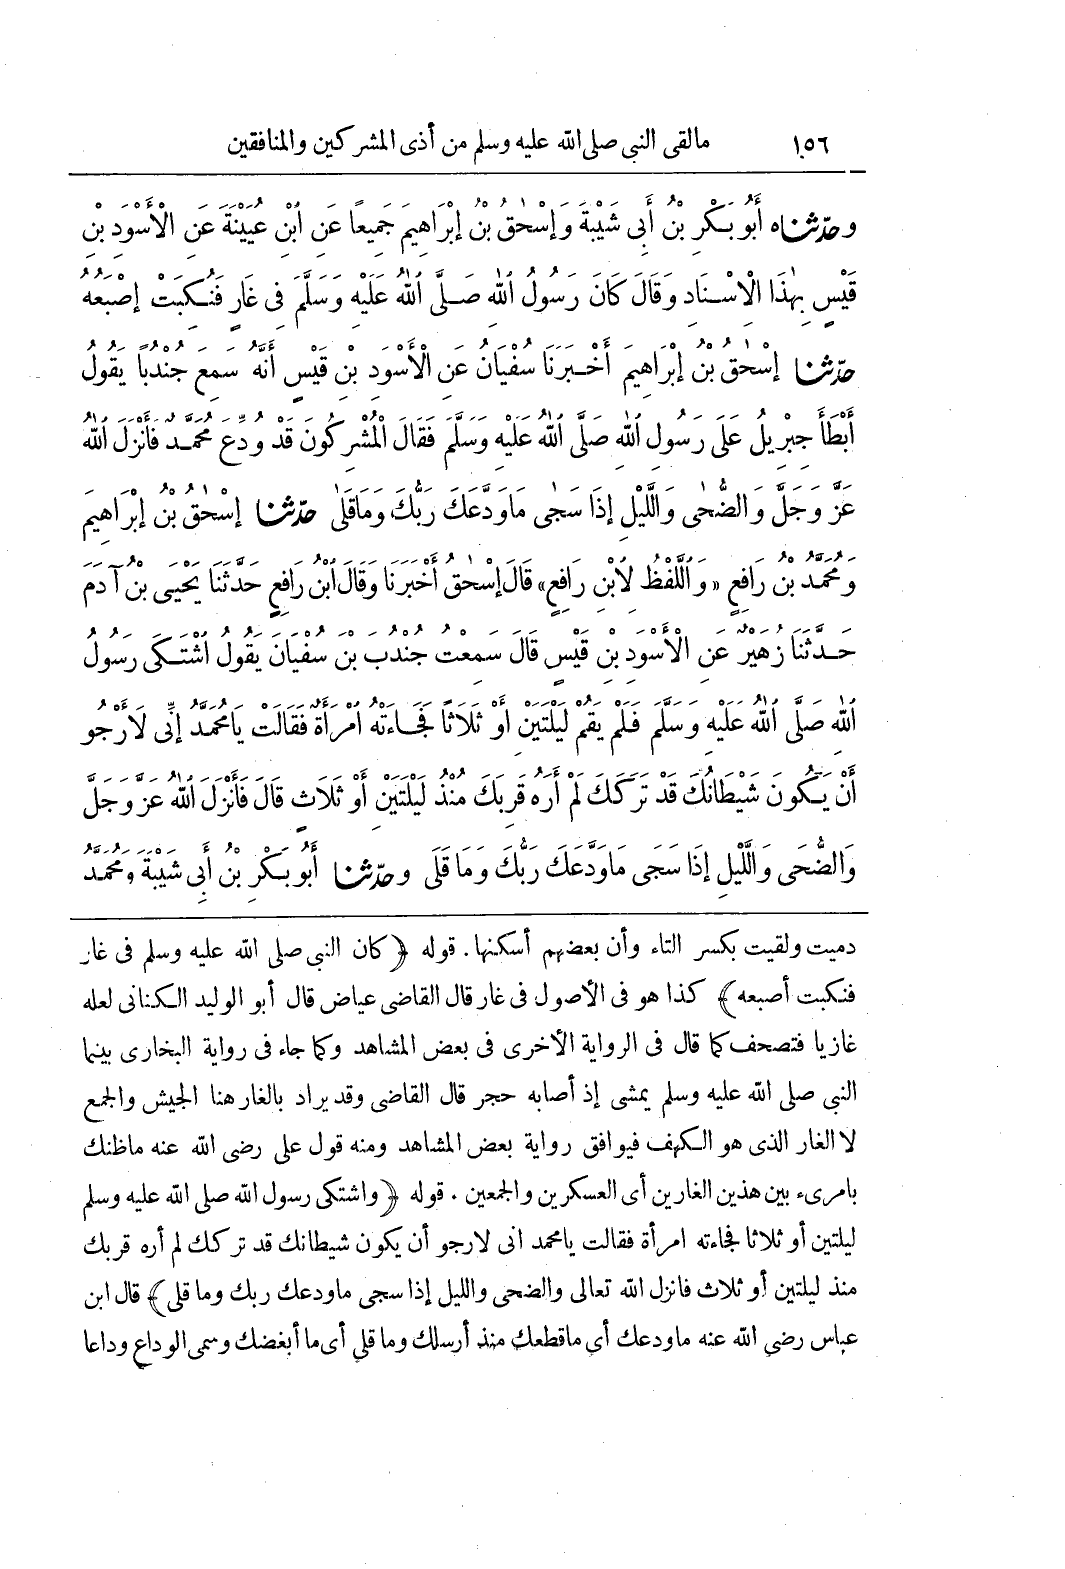 ١٥٦ مالقى النبى صلى الله عليه وسلم من أذى المشركين والمنافقين
وحَدَّثَنَاه أَبُو بَكْرِ بْنُ أَبِى شَيْبَةَ وَإِسْحٰقُ بْنُ إِبْرَاهِيمَ جَمِيعًا عَنِ ابْنِ عُيَيْنَةَ عَنِ الْأَسْوَدِ بْنِ
قَيْسٍ بِهٰذَا الْإِسْنَادِ وَقَالَ كَانَ رَسُولُ اللهِ صَلَّى اللهُ عَلَيْهِ وَسَلَّمَ فِى غَارٍ فَنُكِبَتْ إِصْبَعُهُ
حدّثنا إِسْحٰقُ بْنُ إِبْرَاهِيمَ أَخْبَرَنَا سُفْيَانُ عَنِ الْأَسْوَدِ بْنِ قَيْسٍ أَنَّهُ سَمِعَ جُنْدُبًا يَقُولُ
أَبْطَأَ جِبْرِيلُ عَلَى رَسُولِ اللهِ صَلَّى اللهُ عَلَيْهِ وَسَلَّمَ فَقَالَ الْمُشْرِكُونَ قَدْ وُدِّعَ مُحَمَّدٌ فَأَنْزَلَ اللهُ
عَزَّ وَجَلَّ وَالضُّحٰى وَاللَّيْلِ إِذَا سَجٰى مَاوَدَّعَكَ رَبُّكَ وَمَاقَلٰى حدّثنا إِسْحٰقُ بْنُ إِبْرَاهِيمَ
وَمُحَمَّدُ بْنُ رَافِعٍ «وَاللَّفْظُ لِابْنِ رَافِعٍ» قَالَ إِسْحٰقُ أَخْبَرَنَا وَقَالَ ابْنُ رَافِعٍ حَدَّثَنَا يَحْيَى بْنُ آدَمَ
حَدَّثَنَا زُهَيْرٌ عَنِ الْأَسْوَدِ بْنِ قَيْسٍ قَالَ سَمِعْتُ جُنْدُبَ بْنَ سُفْيَانَ يَقُولُ اشْتَكَى رَسُولُ
اللهِ صَلَّى اللهُ عَلَيْهِ وَسَلَّمَ فَلَمْ يَقُمْ لَيْلَتَيْنِ أَوْ ثَلَاثًا فَجَاءَتْهُ امْرَأَةٌ فَقَالَتْ يَامُحَمَّدُ إِنِّى لَأَرْجُو
أَنْ يَكُونَ شَيْطَانُكَ قَدْ تَرَكَكَ لَمْ أَرَهُ قَرِبَكَ مُنْذُ لَيْلَتَيْنِ أَوْ ثَلَاثٍ قَالَ فَأَنْزَلَ اللهُ عَزَّ وَجَلَّ
وَالضُّحَى وَاللَّيْلِ إِذَا سَجَى مَاوَدَّعَكَ رَبُّكَ وَمَا قَلَى وحدّثنا أَبُو بَكْرِ بْنُ أَبِى شَيْبَةَ وَمُحَمَّدُ
دميت ولقيت بكسر التاء وأن بعضهم أسكنها. قوله ﴿كان النبى صلى الله عليه وسلم فى غار
فنكبت أصبعه﴾ كذا هو فى الأصول فى غار قال القاضى عياض قال أبو الوليد الكنانى لعله
غازيا فتصحف كما قال فى الرواية الأخرى فى بعض المشاهد وكما جاء فى رواية البخارى بينما
النبى صلى الله عليه وسلم يمشى إذ أصابه حجر قال القاضى وقد يراد بالغار هنا الجيش والجمع
لا الغار الذى هو الكهف فيوافق رواية بعض المشاهد ومنه قول على رضى الله عنه ماظنك
بامرىء بين هذين الغارين أى العسكرين والجمعين. قوله ﴿واشتكى رسول الله صلى الله عليه وسلم
ليلتين أو ثلاثا فجاءته امرأة فقالت يامحمد انى لارجو أن يكون شيطانك قد تركك لم أره قربك
منذ ليلتين أو ثلاث فانزل الله تعالى والضحى والليل إذا سجى ماودعك ربك وما قلى﴾ قال ابن
عباس رضى الله عنه ماودعك أى ماقطعك منذ أرسلك وما قلى أى ما أبغضك وسمى الوداع وداعا